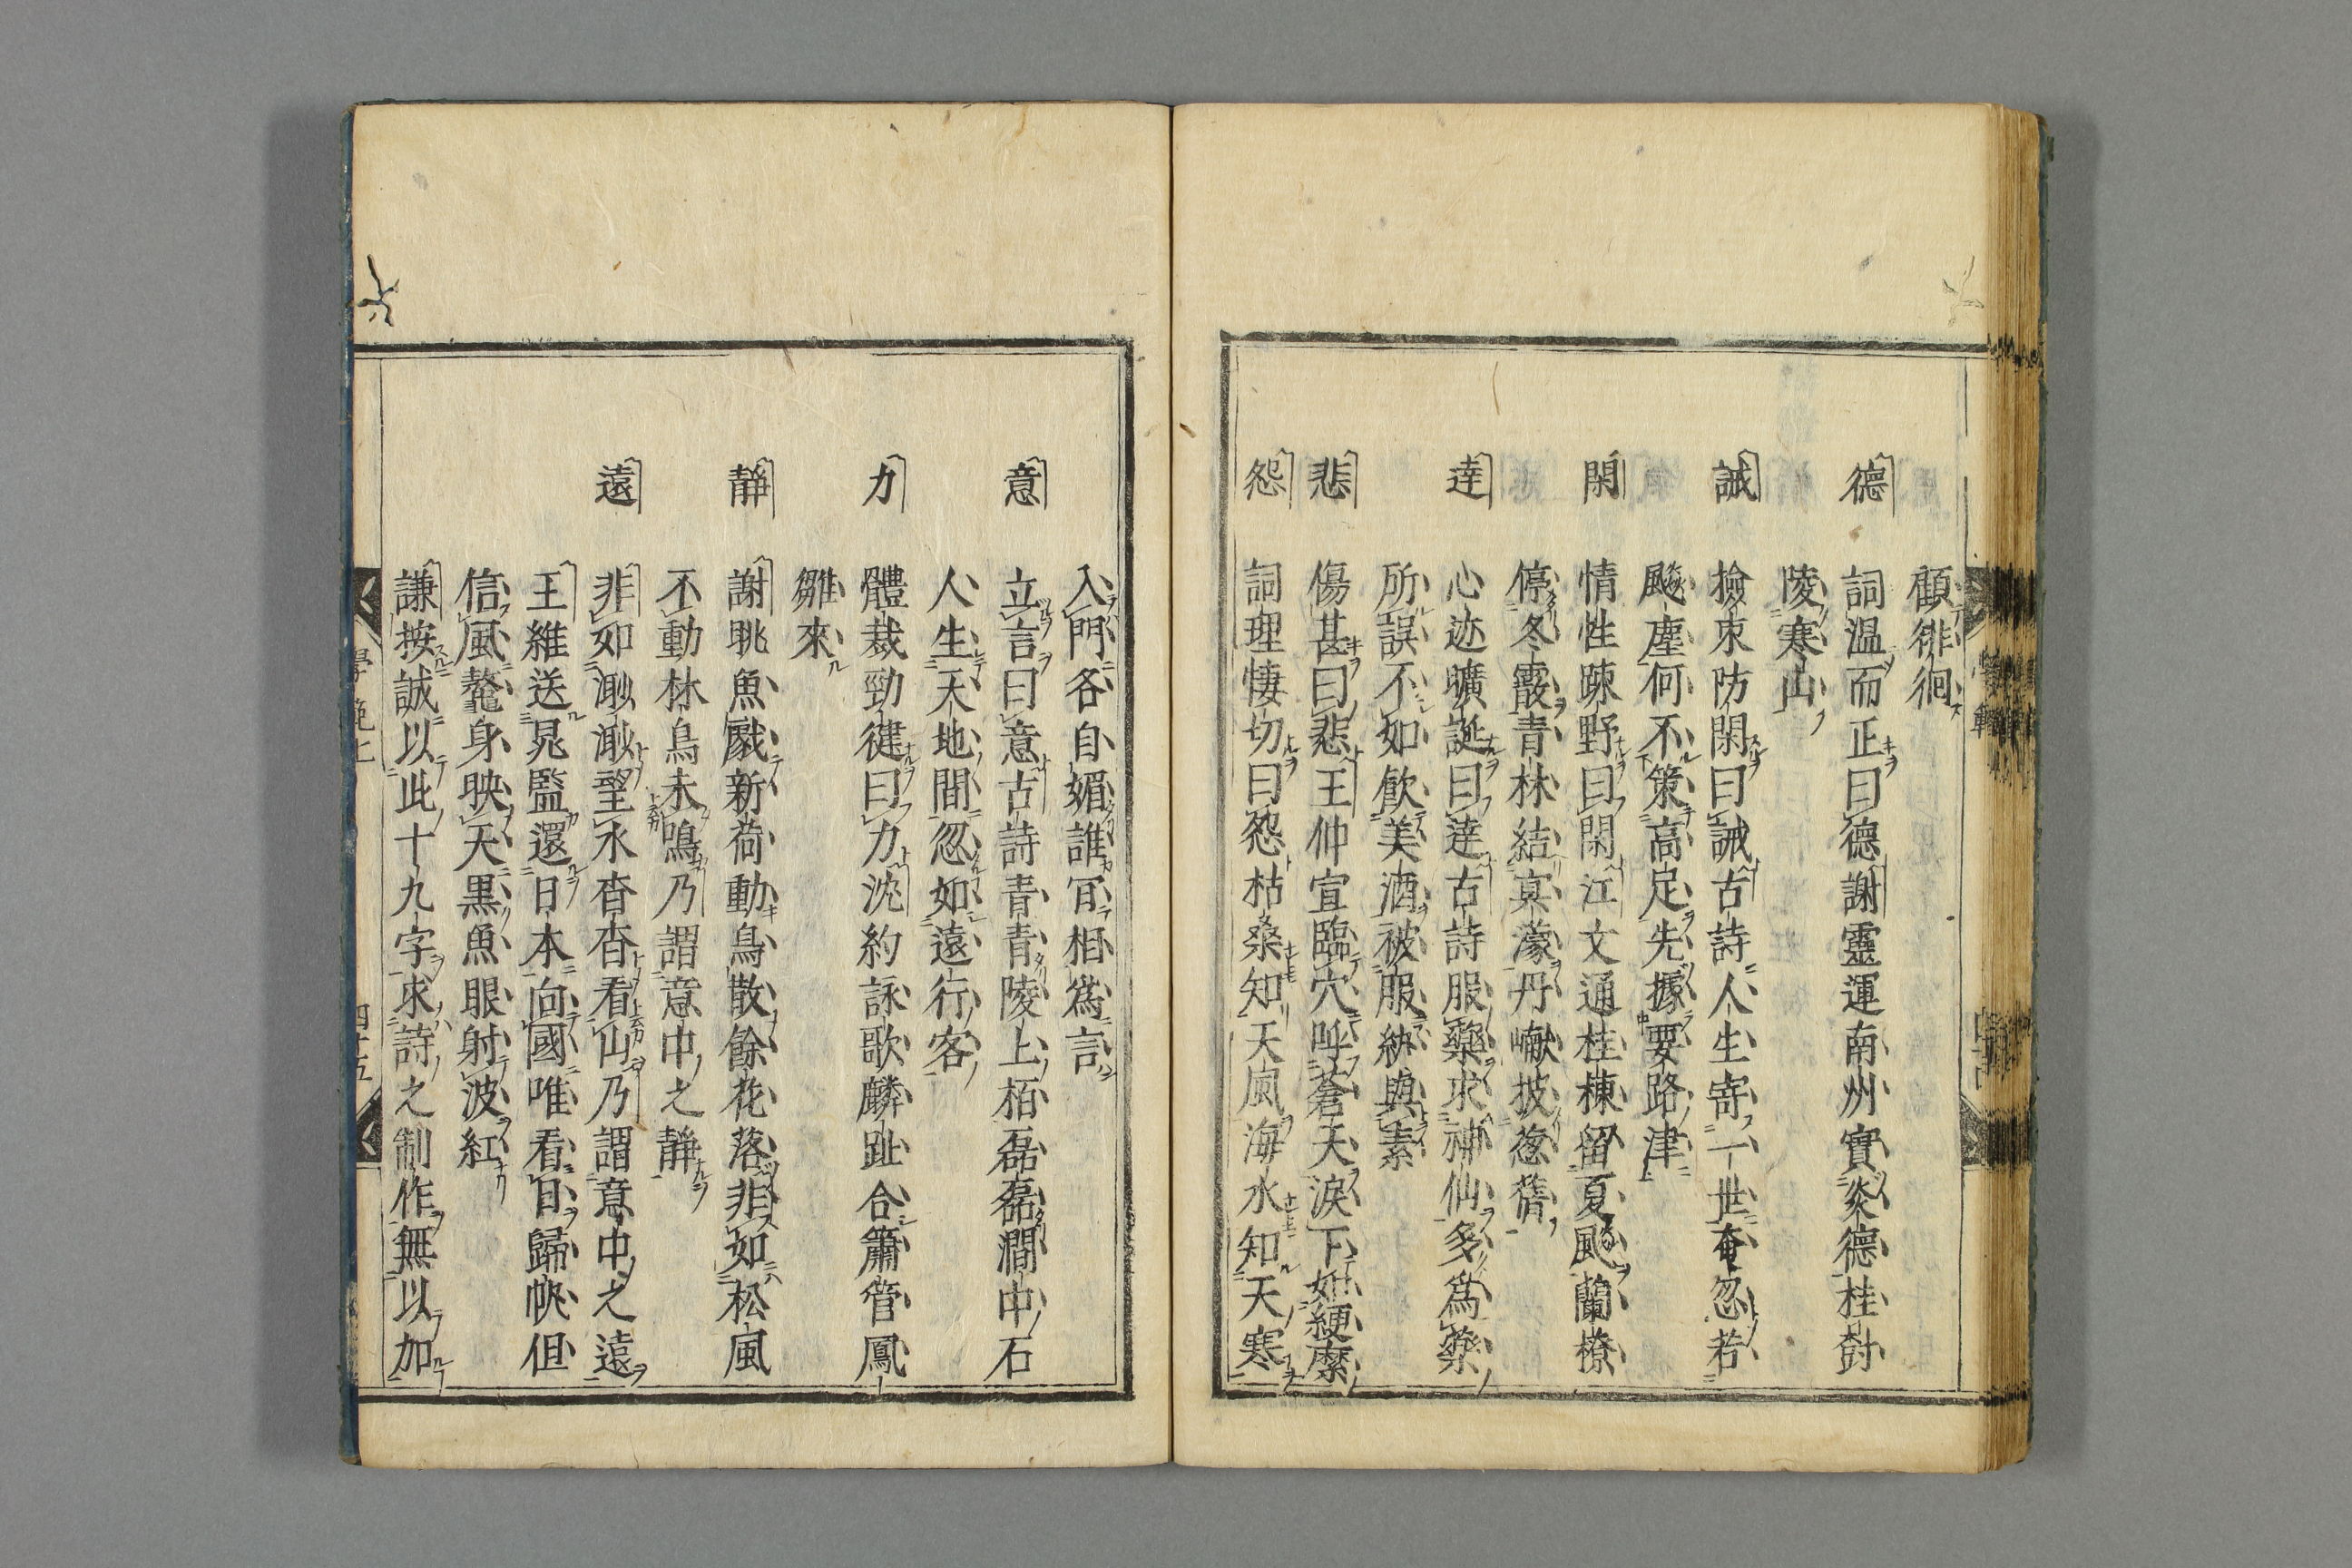 顧徘徊
德 詞溫而正曰德謝靈運南州實炎德桂樹
陵寒山
誡 撿束防閑曰誡古詩人生寄一世奄忽若
飈塵何不策高足先據要路津
閑 情性踈野曰閑江文通桂棟留夏飈蘭橑
停冬霰青林結冥濛丹巘披葱蒨
達 心迹曠誕曰達古詩服藥求神仙多為藥
所誤不如飲美酒被服紈與素
悲 傷甚曰悲王仲宣臨穴呼蒼天淚下如綆縻
怨 詞理悽切曰怨枯桑知天風海水知天寒
入門各自媚誰肎相為言
意 立言曰意古詩青青陵上栢磊磊澗中石
人生天地間忽如遠行客
力 體裁勁健曰力沈約詠歌麟趾合簫管鳳
雛來
靜 謝眺魚戲新荷動鳥散餘花落非如松風
不動林鳥未鳴乃謂意中之靜
遠 非如渺渺望水杳杳看山乃謂意中之遠
王維送晁監還日本向國唯看日歸帆但
信風鼇身映天黑魚眼射波紅
謙按誠以此十九字求詩之制作無以加
學範上
四十五